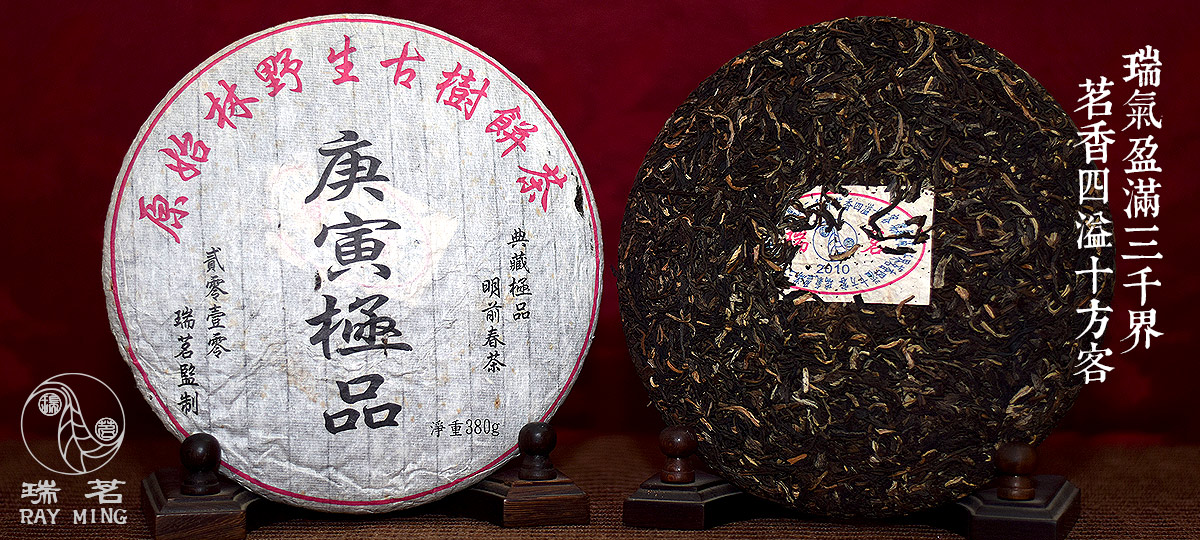 原始林野生古樹餅茶
庚寅極品
典藏極品
明前春茶
貳零壹零
瑞茗監制
淨重380g
瑞 茗
2010
瑞氣盈滿三千界
茗香四溢十方客
瑞茗
瑞 茗
RAY MING